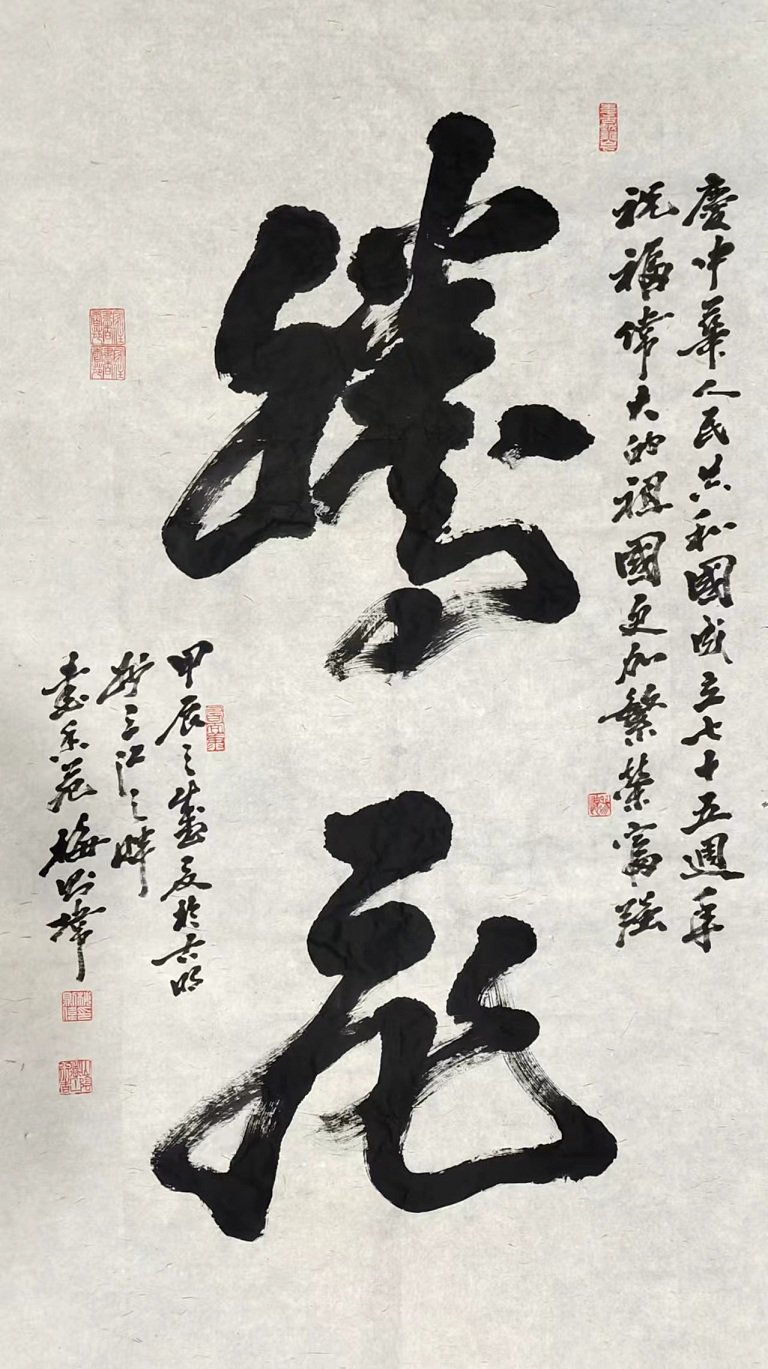 慶中華人民共和國成立七十五週年
祝福偉大的祖國更加繁榮富強
騰飛
甲辰之歲夏於古明
州三江之畔
書香苑 梅則偉